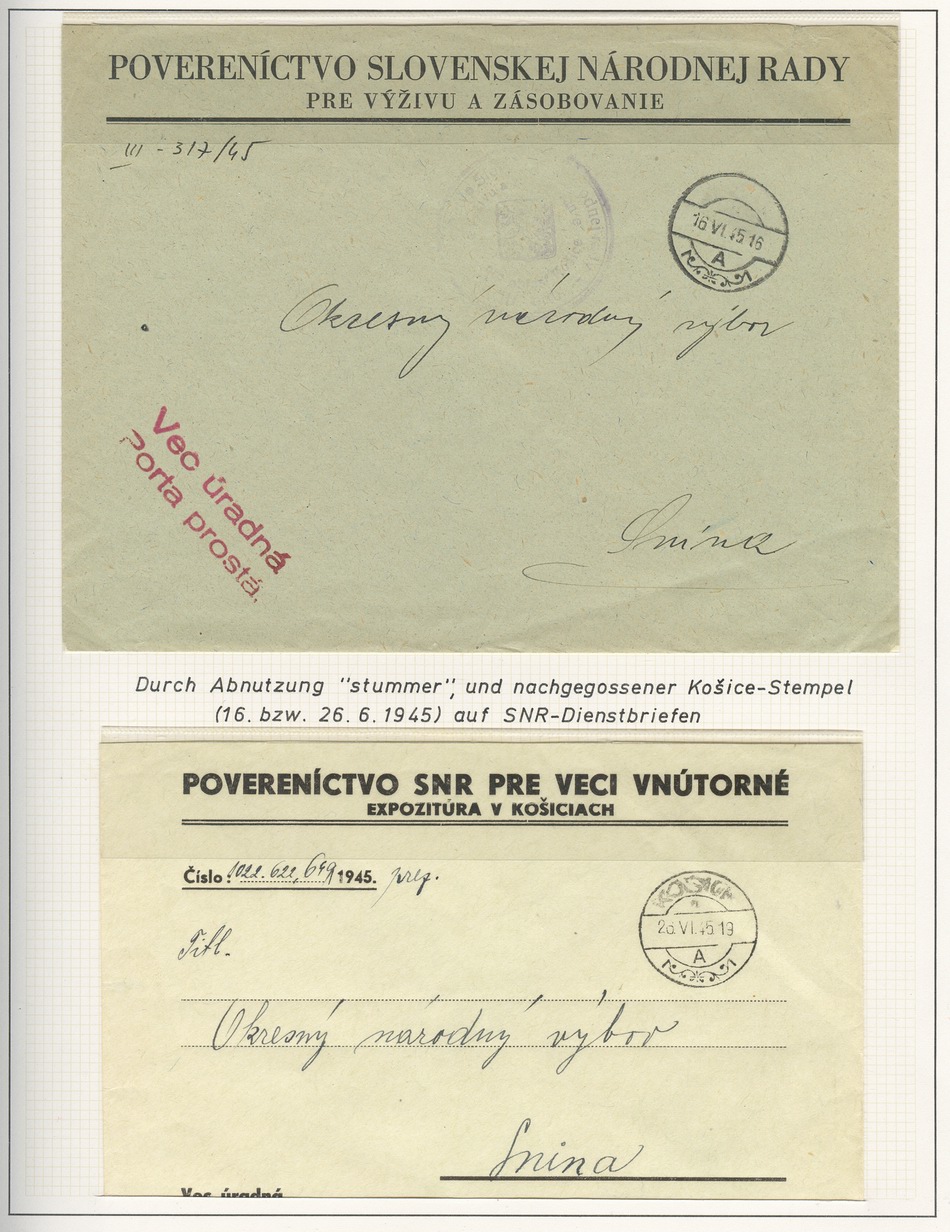 POVERENÍCTVO SLOVENSKEJ NÁRODNEJ RADY
PRE VÝŽIVU A ZÁSOBOVANIE
III - 317/45
16 VI. 45 16
A
Okresný národný výbor
Vec úradná
Porta prostá.
Snina
Durch Abnutzung "stummer", und nachgegossener Košice-Stempel
(16. bzw. 26. 6. 1945) auf SNR-Dienstbriefen
POVERENÍCTVO SNR PRE VECI VNÚTORNÉ
EXPOZITÚRA V KOŠICIACH
Číslo: 1022. 622, 649 1945. prez.
26. VI. 45 19
A
Titl.
Okresný národný výbor
Snina
Vec úradná